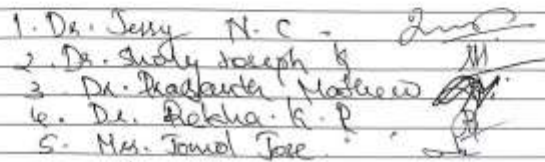 1. Dr. Jessy N. C -
2. Dr. Shaly Joseph K
3. Dr. Prasanth Mathew
4. Dr. Rekha. K. P
5. Mrs. Tomol Jose